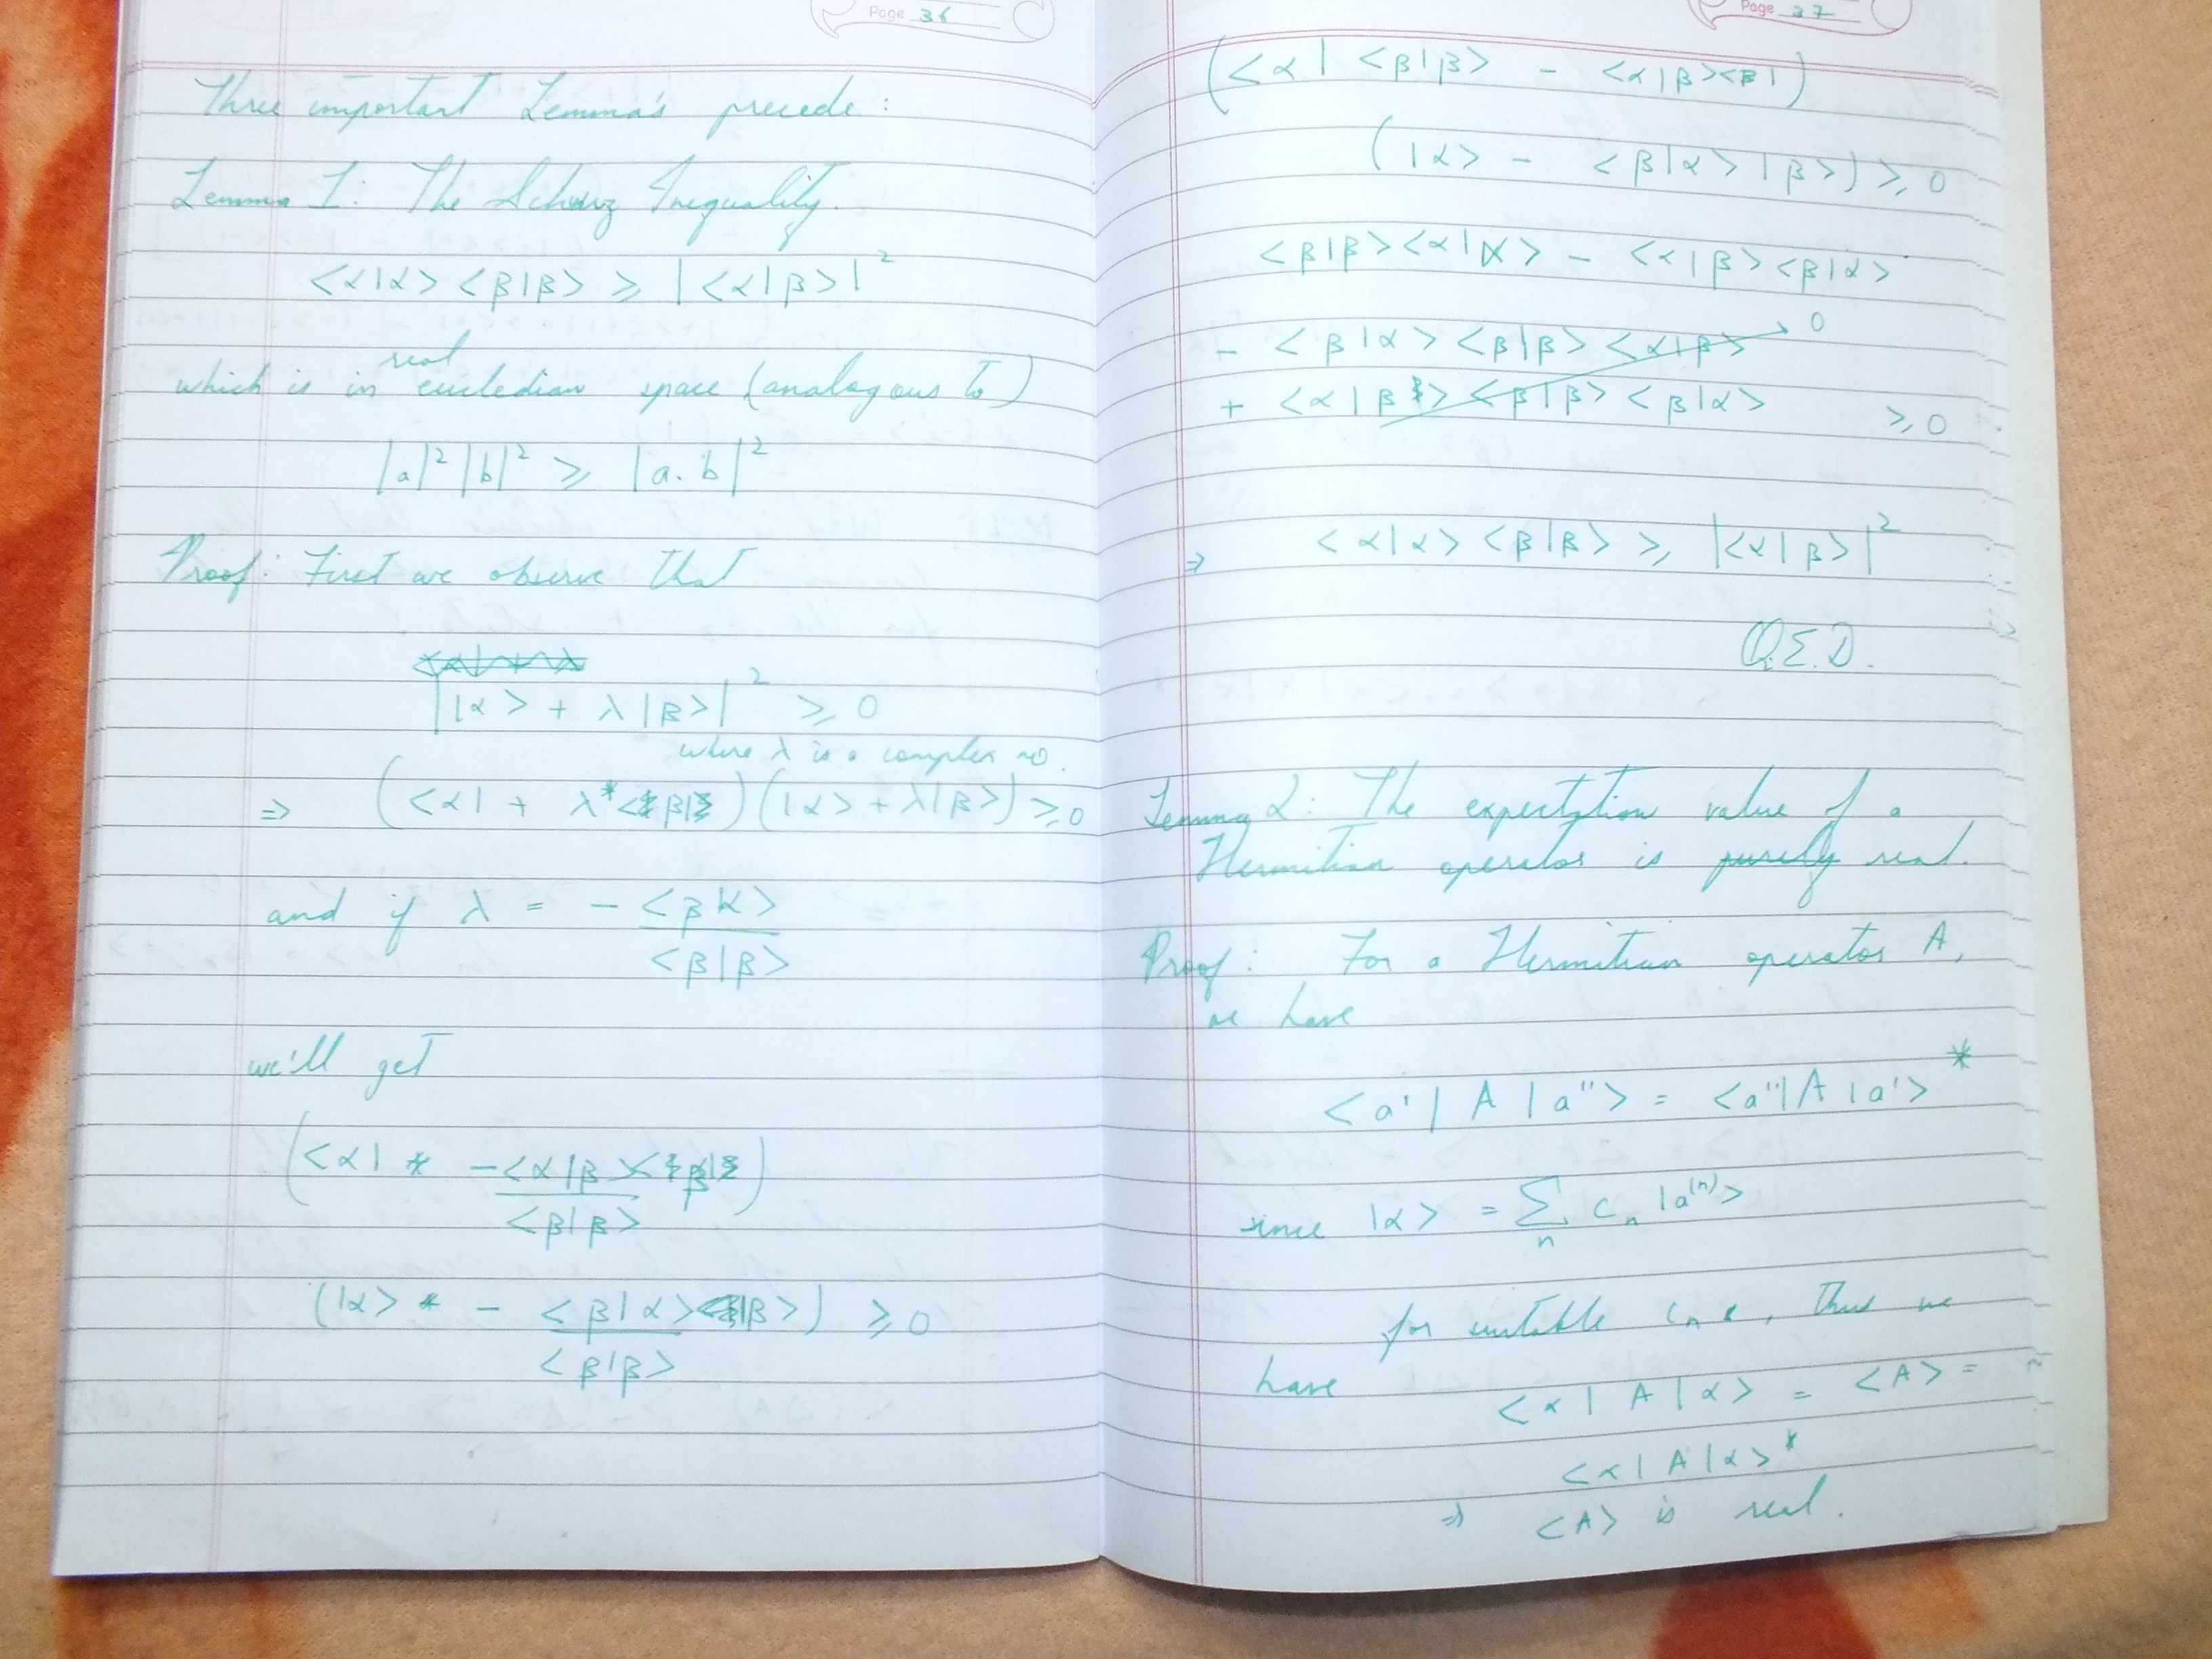 Page 36
Three important Lemma's precede:
Lemma 1: The Schwarz Inequality.
<α|α> <β|β> ≥ |<α|β>|²
real
which is in eucledian space (analogous to)
|a|² |b|² ≥ |a.b|²
Proof: First we observe that
||α> + λ|β>|² ≥ 0
where λ is a complex no.
⇒ (<α| + λ*<β|) (|α> + λ|β>) ≥ 0
and if λ = - <β|α>
<β|β>
we'll get
(<α| - <α|β><β|)
<β|β>
(|α> - <β|α>|β>) ≥ 0
<β|β>
Page 37
(<α| <β|β> - <α|β><β|)
(|α> - <β|α>|β>) ≥ 0
<β|β><α|α> - <α|β><β|α>
- <β|α> <β|β> <α|β> 0
+ <α|β> <β|β> <β|α> ≥ 0
⇒ <α|α> <β|β> ≥ |<α|β>|²
Q.E.D.
Lemma 2: The expectation value of a
Hermitian operator is purely real.
Proof: For a Hermitian operator A,
we have
<a'| A |a''> = <a''| A |a'>*
since |α> = Σ cₙ |a⁽ⁿ⁾>
n
for suitable cₙ, Thus we
have <α| A |α> = <A> =
<α| A |α>*
⇒ <A> is real.